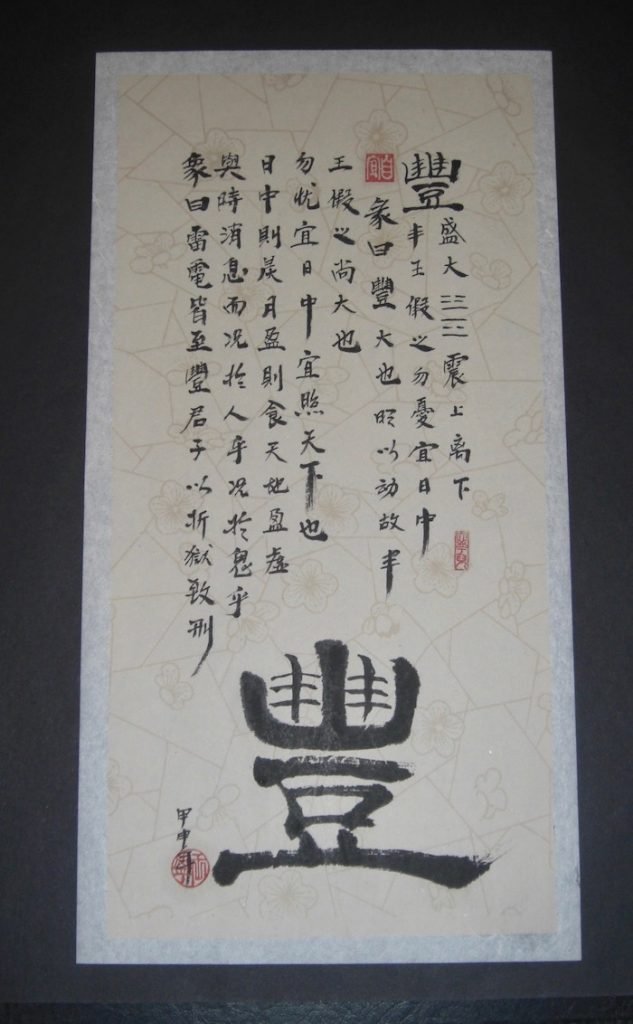 豐盛大䷶震上离下
丰王假之勿憂宜日中
彖曰豐大也明以动故丰
王假之尚大也
勿忧宜日中宜照天下也
日中則昃月盈則食天地盈虛
與時消息而况於人乎况於鬼乎
象曰雷電皆至豐君子以折獄致刑
豐
甲申年